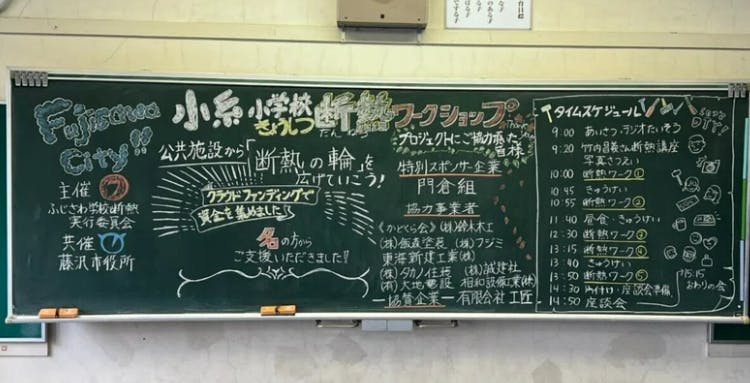 Fujisawa
City!!
主催
ふじさわ学校断熱
実行委員会
共催
藤沢市役所
小糸小学校断熱ワークショップ
きょうしつ だんねつ
公共施設から「断熱の輪」を
広げていこう!
クラウドファンディングで
資金を集めました
名の方から
ご支援いただきました!!
プロジェクトにご協力頂いた
皆様
特別スポンサー企業
門倉組
協力事業者
《かどくら会》(株)鈴木木工
(株)飯森塗装 (株)フジミ
東海新建工業(株)
(株)タカノ住装 (株)誠建社
(有)大地建設 相和設備工業(株)
協賛企業 有限会社 工匠
タイムスケジュール
Enjoy
DIY!
9:00 あいさつ・ラジオたいそう
9:20 竹内昌義さん断熱講座
写真さつえい
10:00 断熱ワーク①
10:45 きゅうけい
10:55 断熱ワーク②
11:40 昼食・きゅうけい
12:30 断熱ワーク③
13:15 断熱ワーク④
13:40 きゅうけい
13:50 断熱ワーク⑤
14:30 片付け・座談会準備
14:50 座談会
15:15
おわりの会